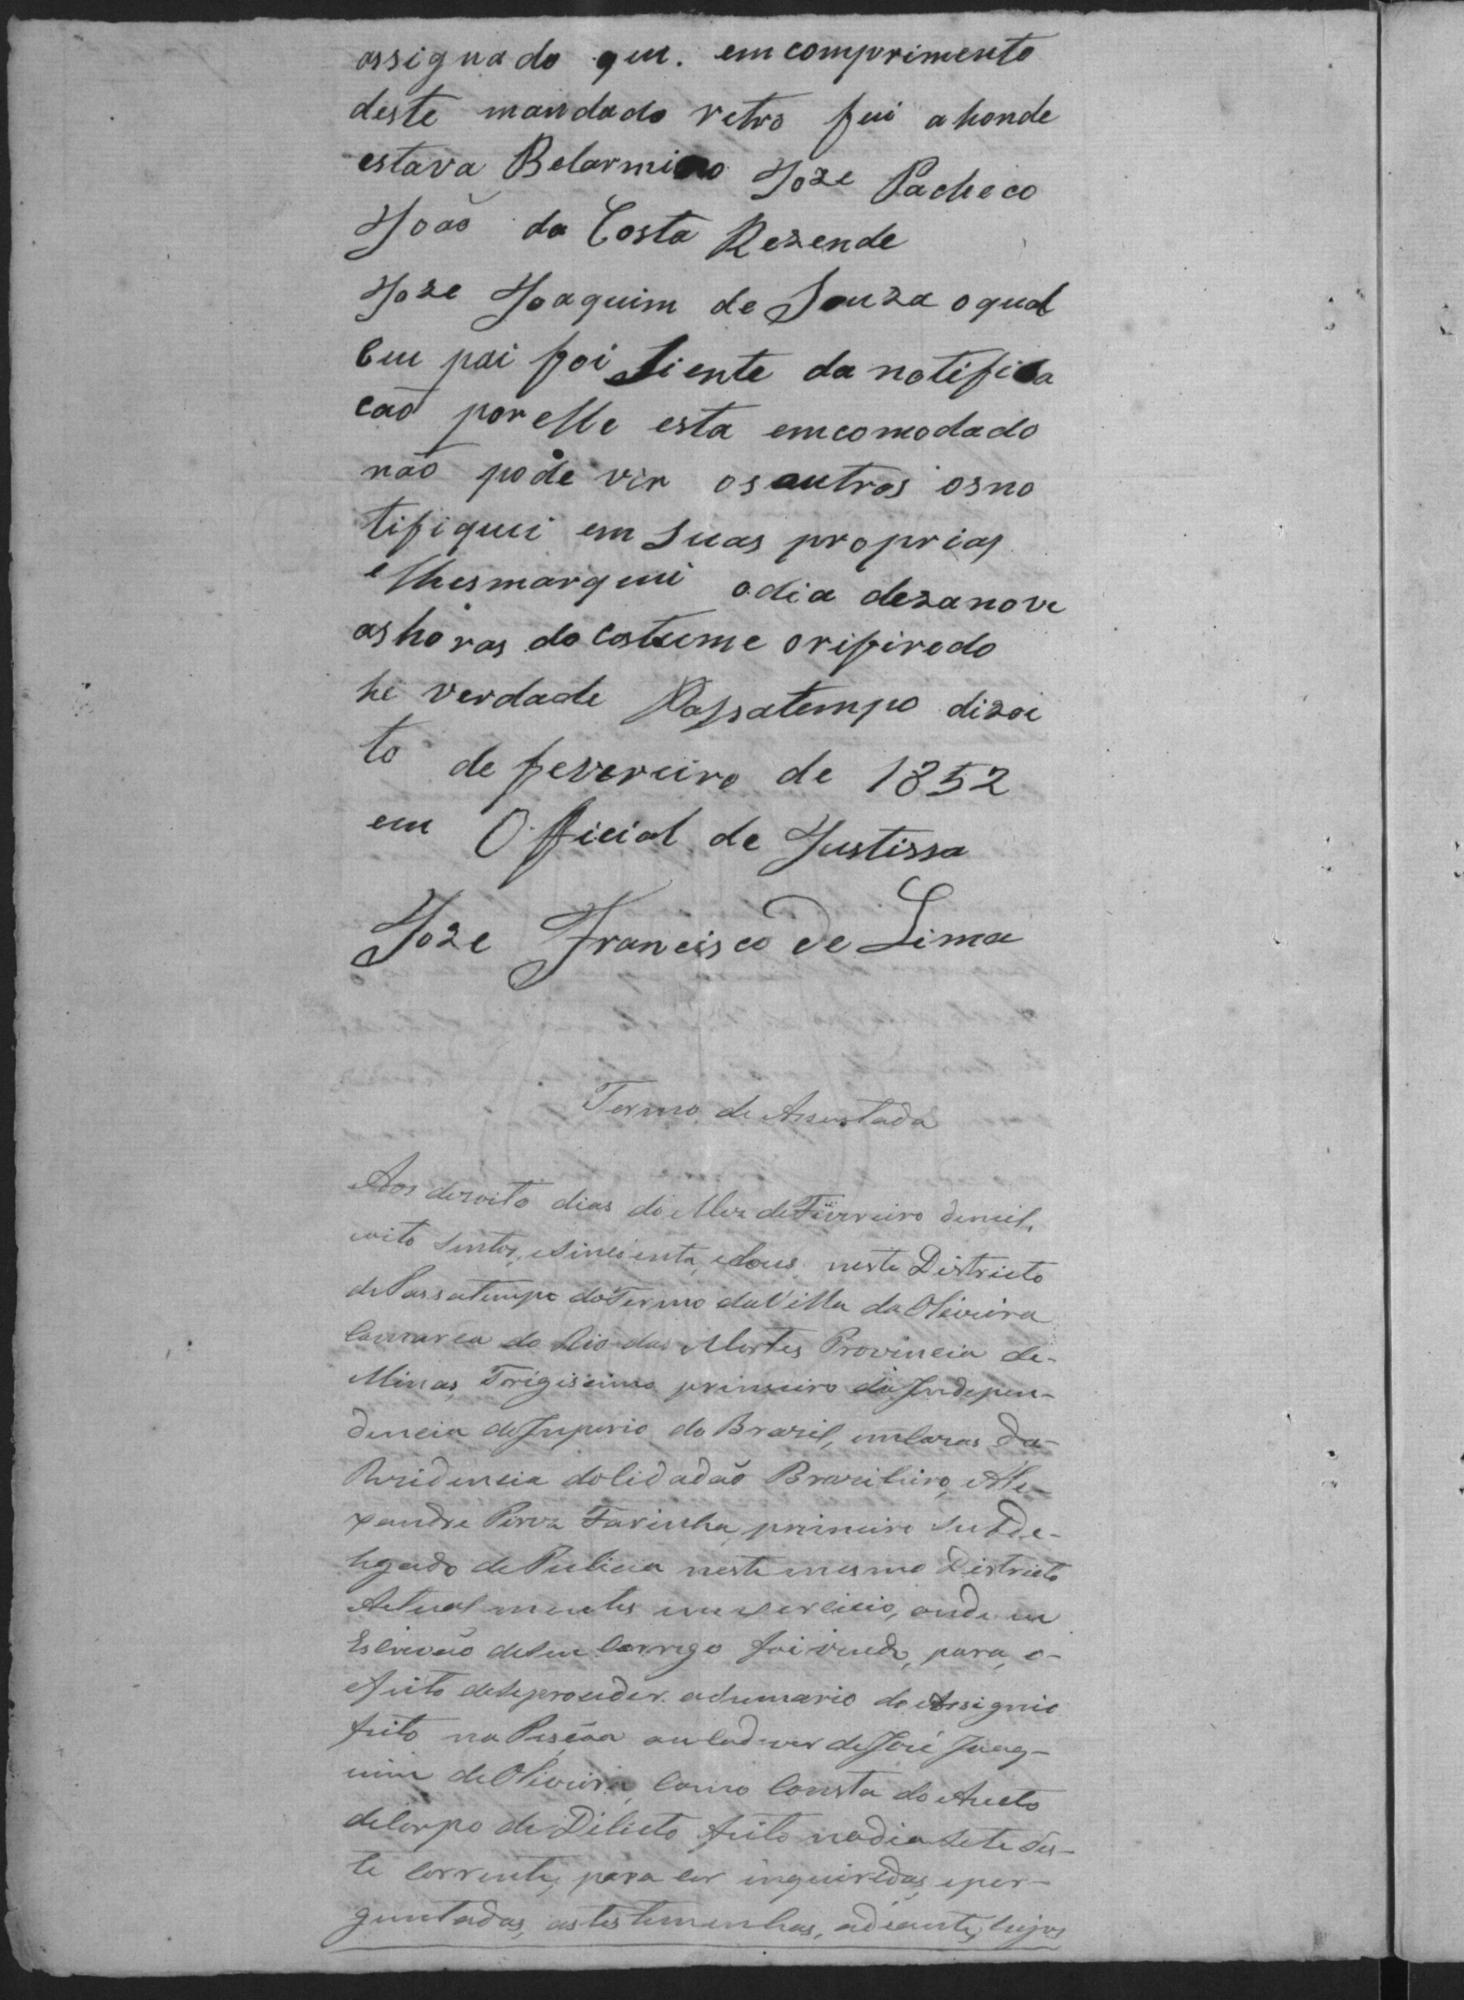 assignado que. em comprimento
deste mandado retro fui ahonde
estava Belarmino Joze Pacheco
João da Costa Rezende
Joze Joaquim de Souza o qual
Ceu pai foi Siente da notifica
cão por elle esta emcomodado
não pode vir os outros os no
tifiquei em Suas proprias
e lhes marquei o dia dezanove
as horas do costume o rifirodo
he verdade Passatempo dizoi
to de fevereiro de 1852
eu Official de Justissa
Joze Francisco de Lima
Termo de Assentada
Aos dezoito dias do Mez de Fevreiro de mil,
oito sentos, e sincoenta, e dous neste Districto
de Passatempo do Termo da Villa da Oliveira
Comarca do Rio das Mortes Provincia de
Minas, Trigissimo primeiro da Indepen-
dencia do Imperio do Brazil, em Cazas da
Rezidencia do Cidadão Brazileiro, Ale-
xandre Farinha, primeiro Subde-
legado de Pulicia neste mesmo Districto
Actualmente em exercicio, onde eu
Escrivão de seu Carrego foi vindo, para o
efeito de se proceder a Sumario do Assignio
feito na Pesçoa ou Cadaver de José Juaq-
uim de Oliveira, como Consta do Aucto
de Corpo de Dilicto feito no dia Sete des-
te Corrente, para ser inquiridas, e per-
guntadas, as testemunhas, adiante, Cujos